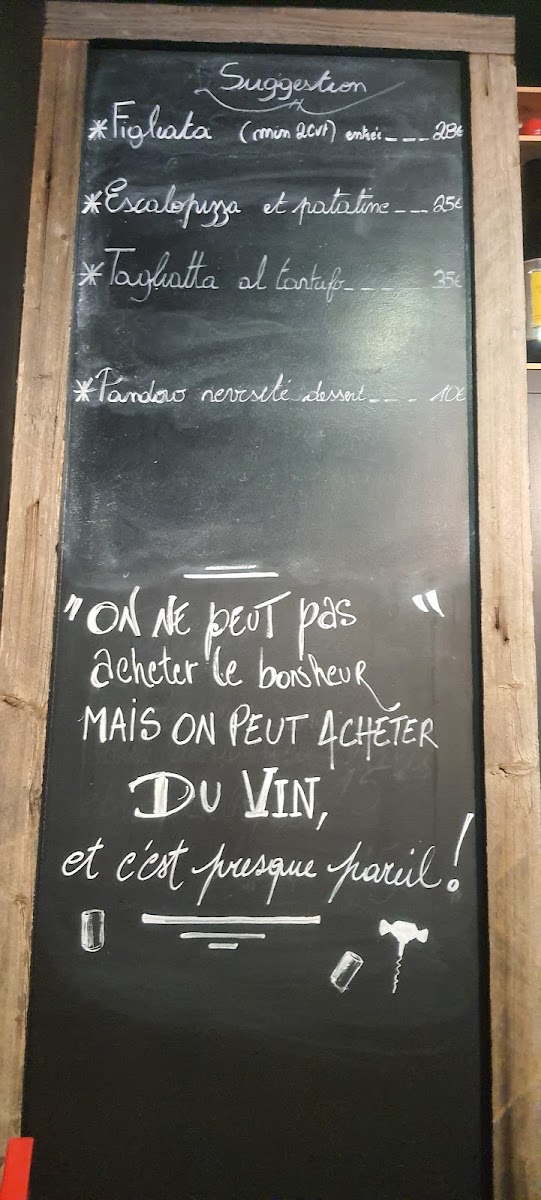 Suggestion
*Figliata (min 2cvt) entrée___28€
*Escalopizza et patatine___25€
*Tagliatta al tartufo____35€
*Pandoro revisité dessert___10€
"ON NE PEUT pas "
acheter le bonheur
MAIS ON PEUT ACHETER
DU VIN,
et c'est presque pareil!